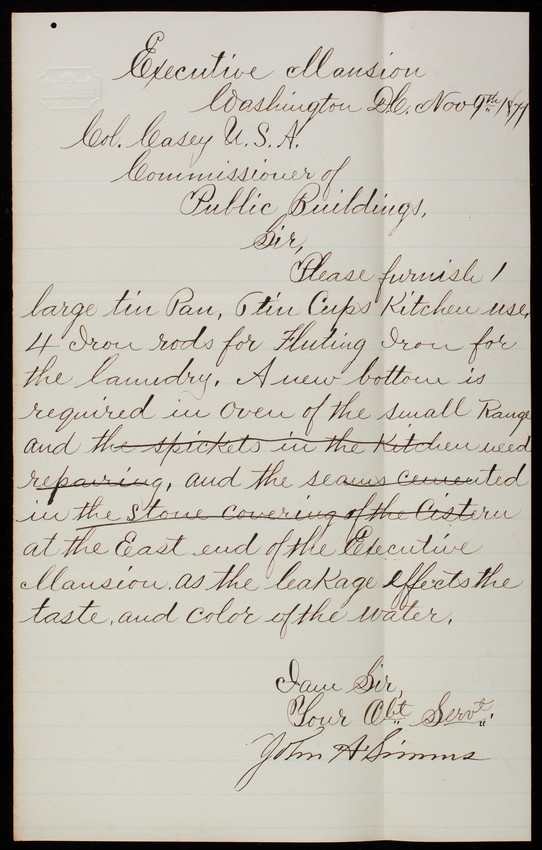 Executive Mansion
Washington D.C. Nov 9th 1877
Col. Casey U.S.A.
Commissioner of
Public Buildings,
Sir,
Please furnish 1
large tin Pan, 6 tin Cups Kitchen use,
4 Iron rods for Fluting Iron for
the laundry. A new bottom is
required in oven of the small Range
and the spickets in the Kitchen need
repairing, and the seams cemented
in the stone covering of the Cistern
at the East end of the Executive
Mansion. as the leakage effects the
taste, and color of the water.
I am Sir,
Your Obt Servt.
John A Simms